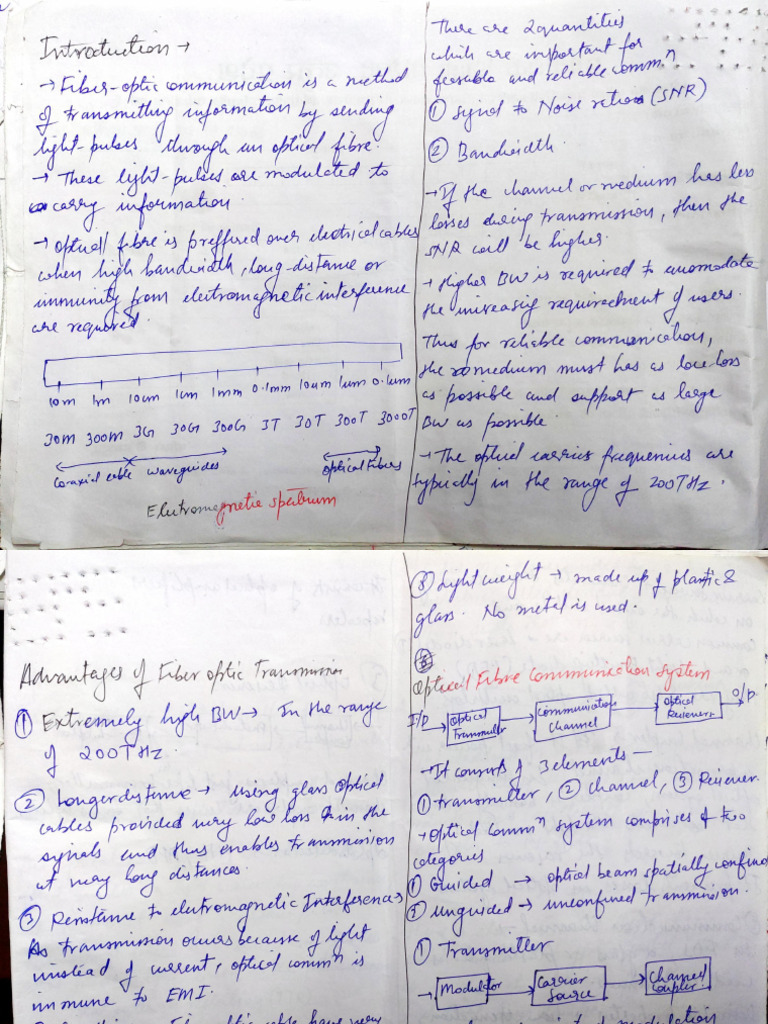 Introduction →
→ Fiber-optic communication is a method
of transmitting information by sending
light-pulses through an optical fibre.
→ These light-pulses are modulated to
carry information.
→ optical fibre is preffured over electrical cables
when high bandwidth, long-distance or
immunity from electromagnetic interference
are required.
10m 1m 10cm 1cm 1mm 0.1mm 10um 1um 0.1um
30M 300M 3G 30G 300G 3T 30T 300T 3000T
coaxial cable waveguides optical Fibers
Electromagnetic spectrum
There are 2 quantities
which are important for
feasable and reliable commⁿ
① Signal to Noise ratio (SNR)
② Bandwidth.
→ If the channel or medium has less
losses during transmission, then the
SNR will be higher.
→ Higher BW is required to accomodate
the increasing requirement of users.
Thus for reliable communication,
the medium must has as low loss
as possible and support as large
BW as possible.
→ The optical carrier frequencies are
typically in the range of 200THz.
Advantages of Fiber optic Transmission
① Extremely high BW → In the range
of 200THz.
② Longer distance → using glass optical
cables provided very low loss in the
signals and thus enables transmission
at very long distances.
③ Resistance to electromagnetic Interference →
As transmission occurs because of light
instead of current, optical commⁿ is
immune to EMI.
cable have very
⑧ Light weight → made up of plastic &
glass. No metal is used.
Optical Fibre Communication System
I/P Optical Transmitter Communication Channel Optical Receiver O/P
→ It consists of 3 elements —
① transmitter, ② channel, ③ Reciever.
→ Optical commⁿ system comprises of two
categories
① Guided → optical beam spatially confined
② unguided → unconfined transmission.
① Transmitter
→ Modulator Carrier Source Channel Coupler
modulation